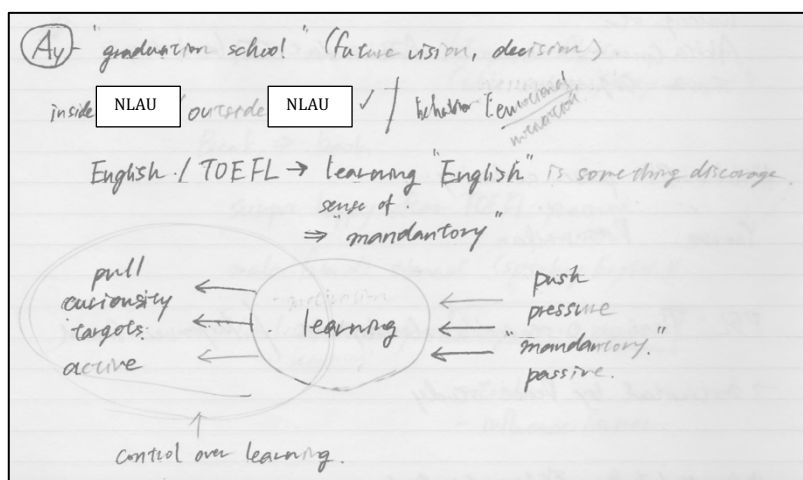 Ay - "graduation school" (future vision, decision)
inside NLAU / outside NLAU ✓ / behavior [emotional
interaction
English / TOEFL → learning "English" is something discourage
sense of
⇒ mandantory"
pull
curiousity
targets.
active
learning
push
pressure
"mandantory."
passive.
control over learning.